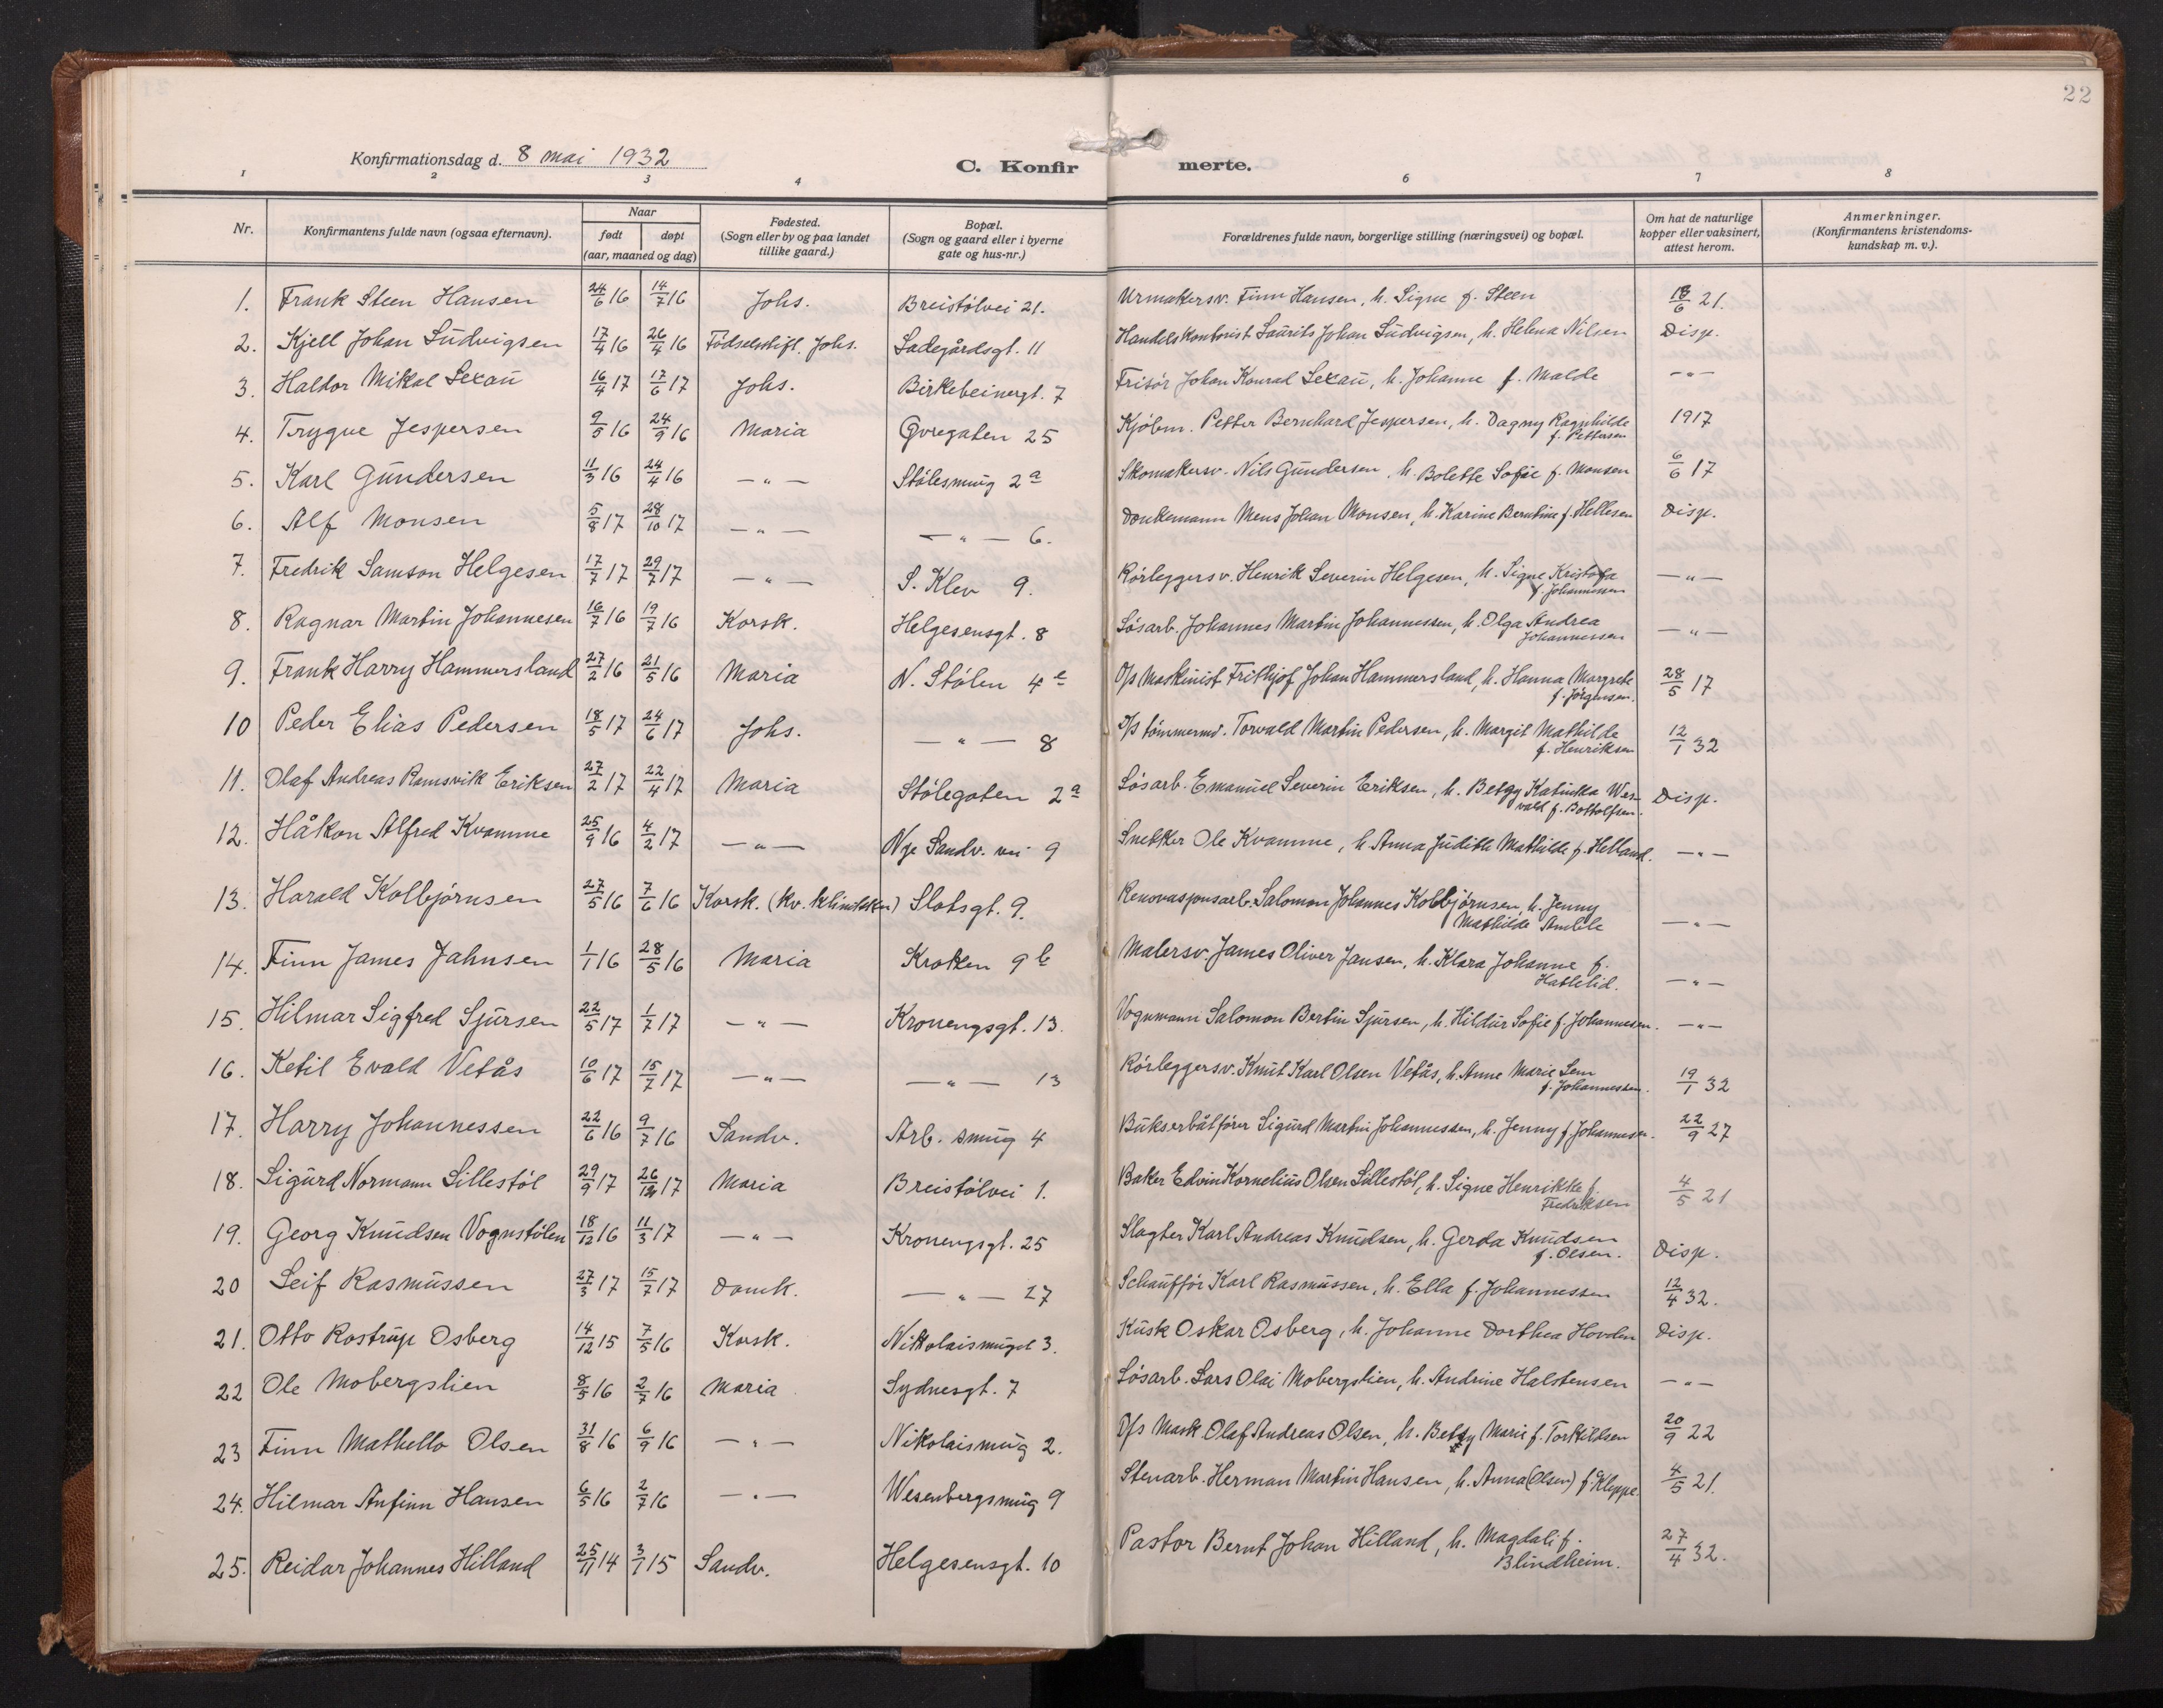 22
Konfirmationsdag d. 8 mai 1932
C. Konfirmerte.
1 2 3 4 6 7 8
Nr.
Konfirmantens fulde navn (ogsaa efternavn).
Naar
født døpt
(aar, maaned og dag)
Fødested.
(Sogn eller by og paa landet
tillike gaard.)
Bopæl.
(Sogn og gaard eller i byerne
gate og hus-nr.)
Forældrenes fulde navn, borgerlige stilling (næringsvei) og bopæl.
Om hat de naturlige
kopper eller vaksinert,
attest herom.
Anmerkninger.
(Konfirmantens kristendoms-
kundskap m. v.).
1. Frank Steen Hansen 24/6 16 14/7 16 Johs. Breistølvei 21. Urmakersv. Finn Hansen, h. Signe f. Steen 18/6 21.
2. Kjell Johan Ludvigsen 17/4 16 26/4 16 Fødselsstift. Johs. Ladegårdsgt. 11 Handelskontorist Laurits Johan Ludvigsen, h. Helena Nilsen Disp.
3. Haldor Mikal Lexau 16/4 17 17/6 17 Johs. Birkebeinergt. 7 Frisør Johan Konrad Lexau, h. Johanne f. Malde — " —
4. Trygve Jespersen 9/5 16 24/9 16 Maria Øvregaten 25 Kjøbm. Petter Bernhard Jespersen, h. Dagny Ragnhilde 1917
f. Pettersen
5. Karl Gundersen 11/3 16 24/4 16 — " — Stølesmug 2a Skomakersv. Nils Gundersen, h. Bolette Sofie f. Monsen 6/6 17
6. Alf Monsen 5/8 17 28/10 17 — " — — " — 6. Donkemann Mens Johan Monsen, h. Karine Berntine f. Hellesen Disp.
7. Fredrik Samson Helgesen 17/7 17 29/7 17 — " — S. Klev 9. Rørleggersv. Henrik Severin Helgesen, h. Signe Kristofa — " —
f. Johannessen
8. Ragnar Martin Johannesen 16/7 16 19/7 16 Korsk. Helgesensgt. 8 Løsarb. Johannes Martin Johannessen, h. Olga Andrea — " —
Johannessen
9. Frank Harry Hammersland 27/2 16 21/5 16 Maria N. Stølen 4e D/s Maskinist Frithjof Johan Hammersland, h. Hanna Margrete 28/5 17
f. Jørgensen.
10 Peder Elias Pedersen 18/5 17 24/6 17 Johs. — " — 8 D/s tømmermd. Torvald Martin Pedersen, h. Margit Mathilde 12/1 32
f. Henriksen
11. Olaf Andreas Ramsvik Eriksen 27/2 17 22/4 17 Maria Stølegaten 2a Løsarb. Emanuel Severin Eriksen, h. Betzy Katinka Wes- Disp.
vald f. Bottolfsen.
12. Håkon Alfred Kvamme 25/9 16 4/2 17 — " — Nye Sandv. vei 9 Snekker Ole Kvamme, h. Anna Judith Mathilde f. Helland. — " —
13. Harald Kolbjørnsen 27/5 16 7/6 16 Korsk. (kv. klinikken) Slotsgt. 9. Renovasjonsarb. Salomon Johannes Kolbjørnsen, h. Jenny
Mathilde Amble — " —
14. Finn James Jahnsen 1/1 16 28/5 16 Maria Kroken 9b Malersv. James Oliver Jansen, h. Klara Johanne f.
Hatlelid. — " —
15. Hilmar Sigfred Sjursen 22/5 17 1/7 17 — " — Kronengsgt. 13. Vognmann Salomon Bertin Sjursen, h. Hildur Sofie f. Johannesen. — " —
16. Ketil Evald Vetås 10/6 17 15/7 17 — " — — " — 13 Rørleggersv. Knut Karl Olsen Vetås, h. Anne Marie Lem 19/1 32
f. Johannessen.
17. Harry Johannessen 22/6 16 9/7 16 Sandv. Arb. smug 4 Bukserbåtfører Sigurd Martin Johannessen, h. Jenny f. Johannesen. 22/9 27
18. Sigurd Normann Lillestøl 29/9 17 26/12 17 Maria Breistølvei 1. Baker Edvin Kornelius Olsen Lillestøl, h. Signe Henrikke f. 4/5 21
Fredriksen
19. Georg Knudsen Vognstølen 18/12 16 11/3 17 — " — Kronengsgt. 25 Slagter Karl Andreas Knudsen, h. Gerda Knudsen
f. Olsen. Disp.
20 Leif Rasmussen 27/3 17 15/7 17 Domk. — " — 27 Schauffør Karl Rasmussen, h. Ella f. Johannessen 12/4 32.
21. Otto Rostrup Osberg 14/12 15 7/5 16 Korsk. Nikolaismuget 3. Kusk Oskar Osberg, h. Johanne Dorthea Hovden Disp.
22 Ole Mobergslien 8/5 16 2/7 16 Maria Sydnesgt. 7 Løsarb. Lars Olai Mobergslien, h. Andrine Halstensen — " —
23 Finn Mathello Olsen 31/8 16 6/9 16 — " — Nikolaismug 2. D/s Mask Olaf Andreas Olsen, h. Betzy Marie f. Torkildsen 20/9 22
24. Hilmar Anfinn Hansen 6/5 16 2/7 16 — " — Wesenbergsmug 9 Stenarb. Herman Martin Hansen, h. Anna (Olsen) f. Kleppe. 4/5 21.
25. Reidar Johannes Hilland 25/11 14 3/1 15 Sandv. Helgesensgt. 10 Pastor Bernt Johan Hilland, h. Magdali f. 27/4 32.
Blindheim.